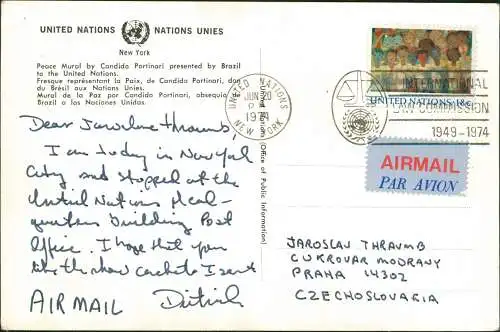 UNITED NATIONS NATIONS UNIES
New York
Peace Mural by Candido Portinari presented by Brazil
to the United Nations.
Fresque représentant la Paix, de Candido Portinari, don
du Brésil aux Nations Unies.
Mural de la Paz por Candido Portinari, obsequio de
Brazil a las Naciones Unidas.
Dear Jaroslav Thraumb
I am today in New York
City and stopped at the
United Nations Head-
quarters building Post
Office. I hope that you
like the show cachets I sent
AIR MAIL
United Nations (Office of Public Information)
UNITED NATIONS
JUN 20
1974
NEW YORK
UNITED NATIONS 18c
INTERNATIONAL
LAW COMMISSION
1949-1974
AIRMAIL
PAR AVION
JAROSLAV THRAUMB
CUKROVAR MODRANY
PRAHA 14302
CZECHOSLOVAKIA